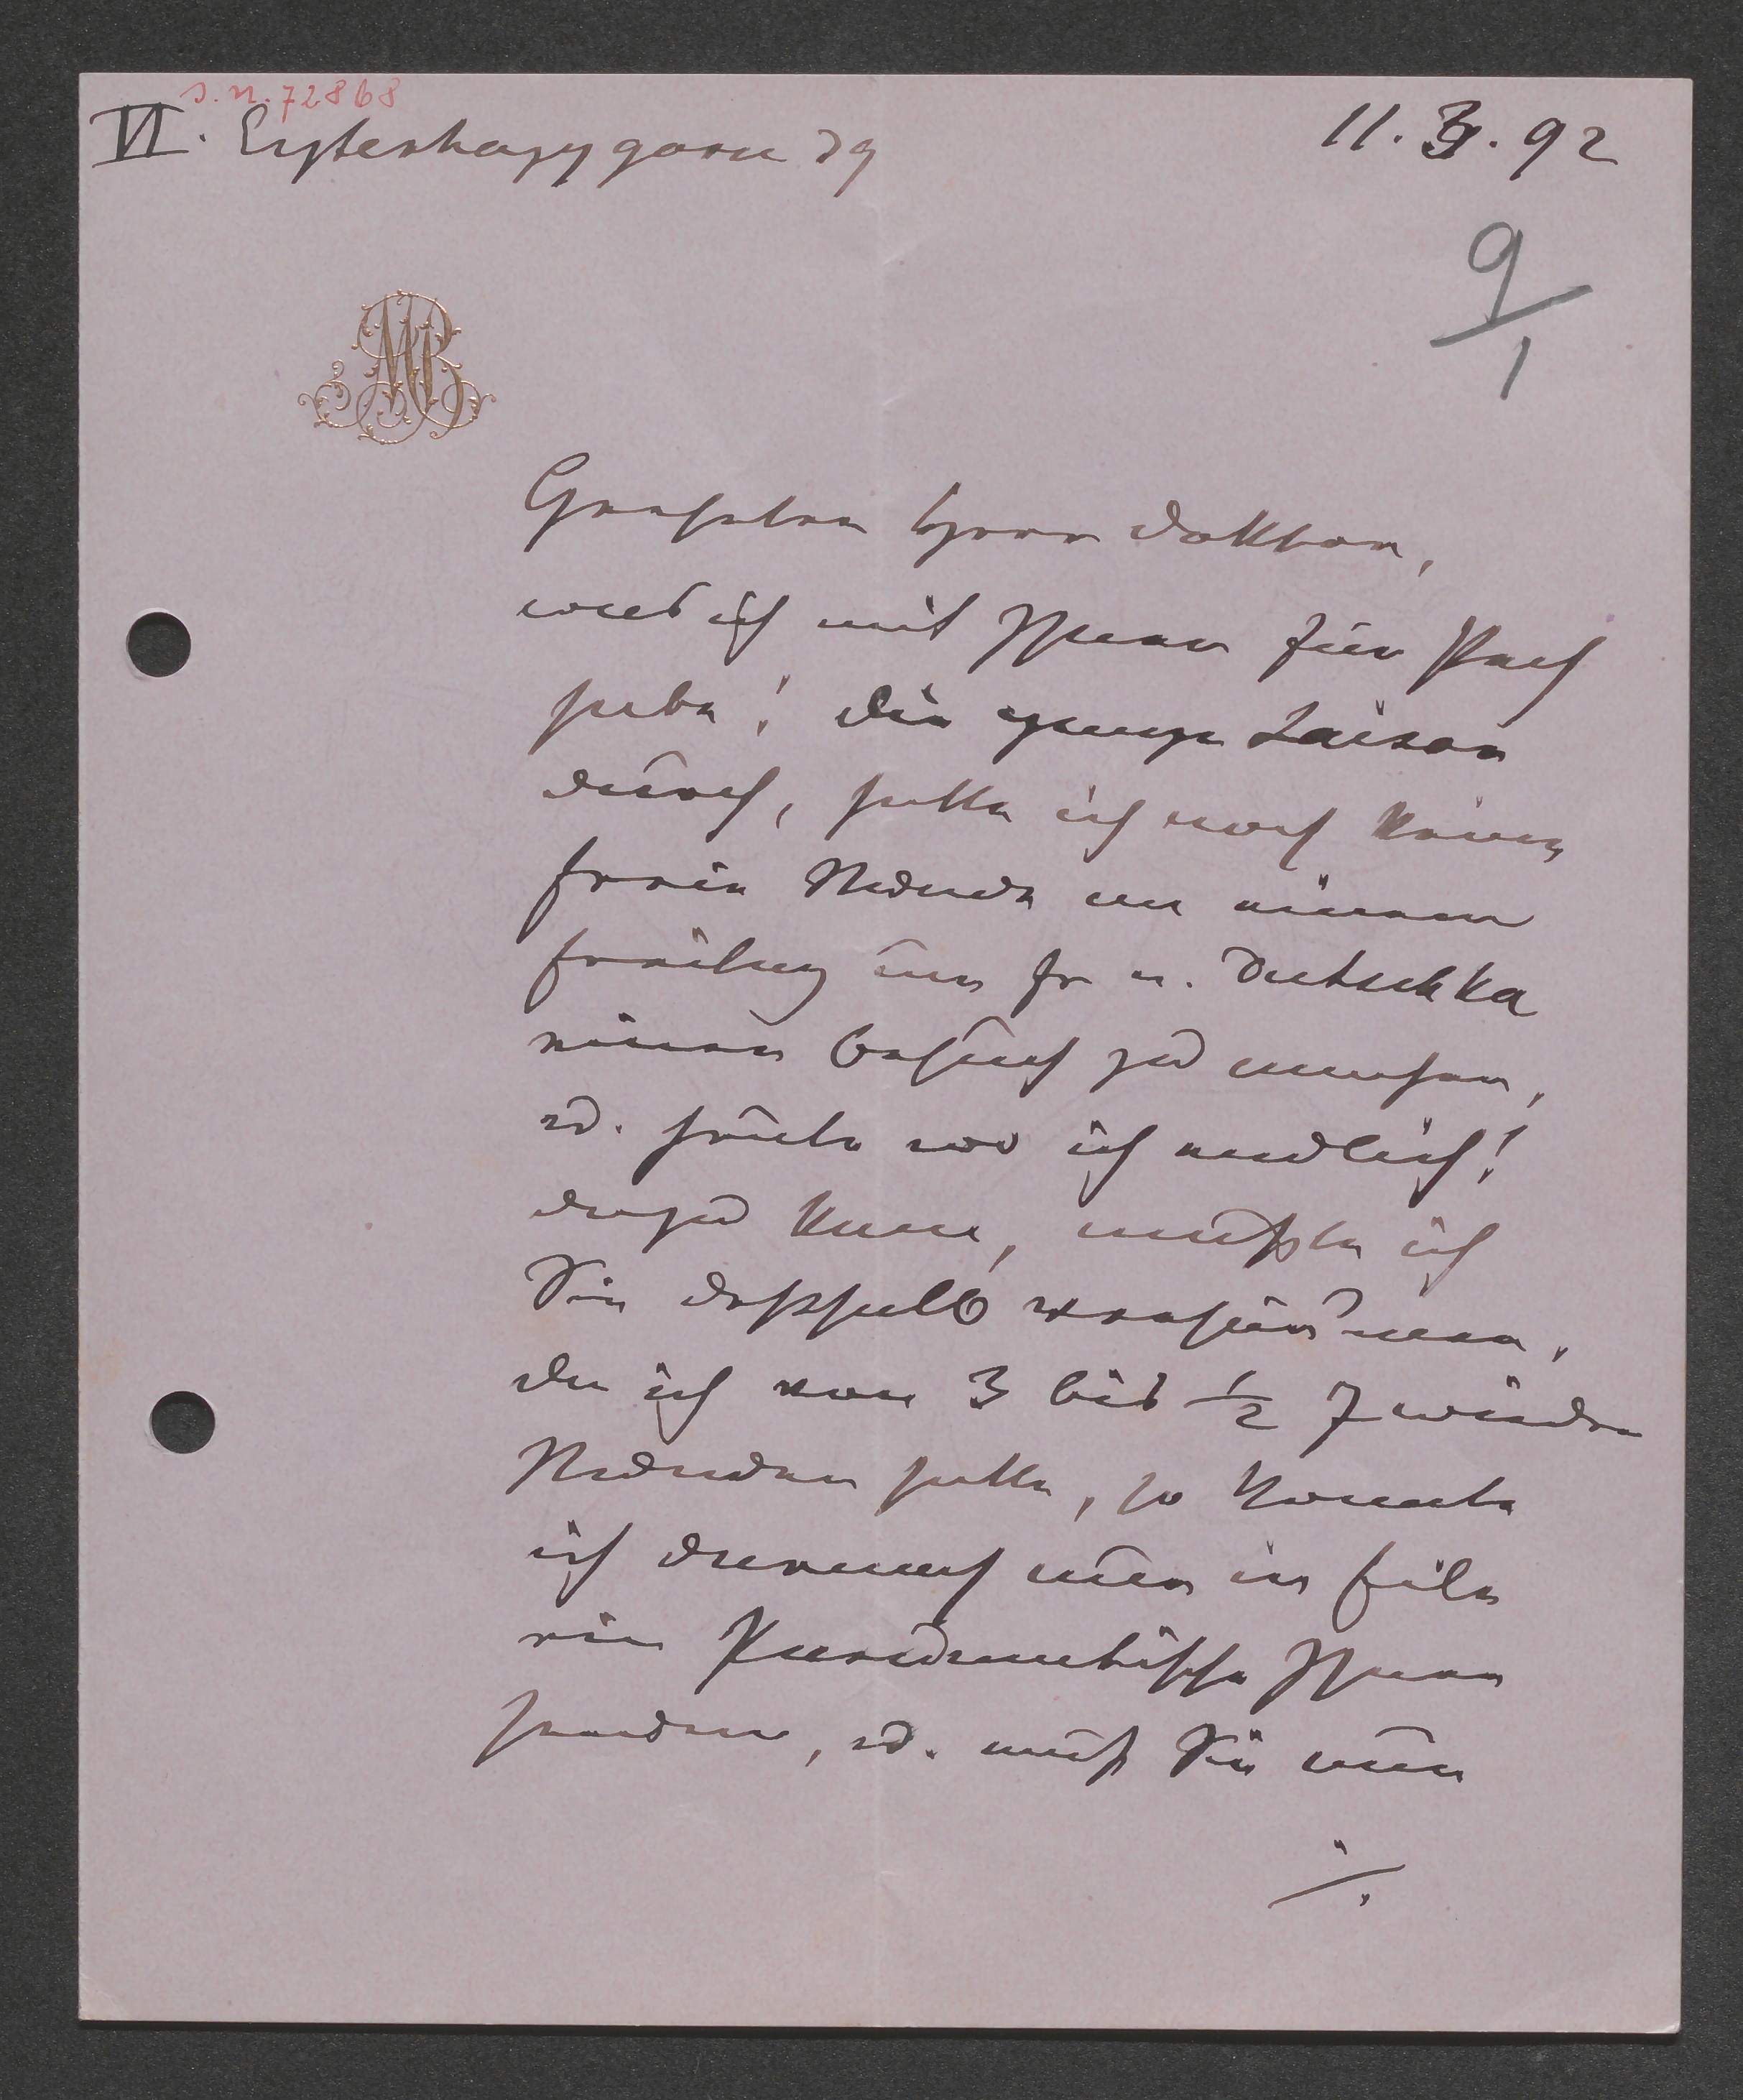 I.N. 72868
VI. Eszterhazygasse 29
11.3.92
9/1
MB
Geehrter Herr Doktor,
was ich mit Ihnen für Pech
habe! Die ganze Saison
durch, hatte ich noch keine
freie Stunde an einem
Freitag um Fr v. Dutschka
einen Besuch zu machen,
u. heute wo ich endlich!
dazu kam, mußte ich
Sie deßhalb versäumen,
da ich von 3 bis ½ 7 wieder
Stunden hatte, so konnte
ich darnach nur in Eile
die Ihnen
senden, u. muß Sie nun
./.